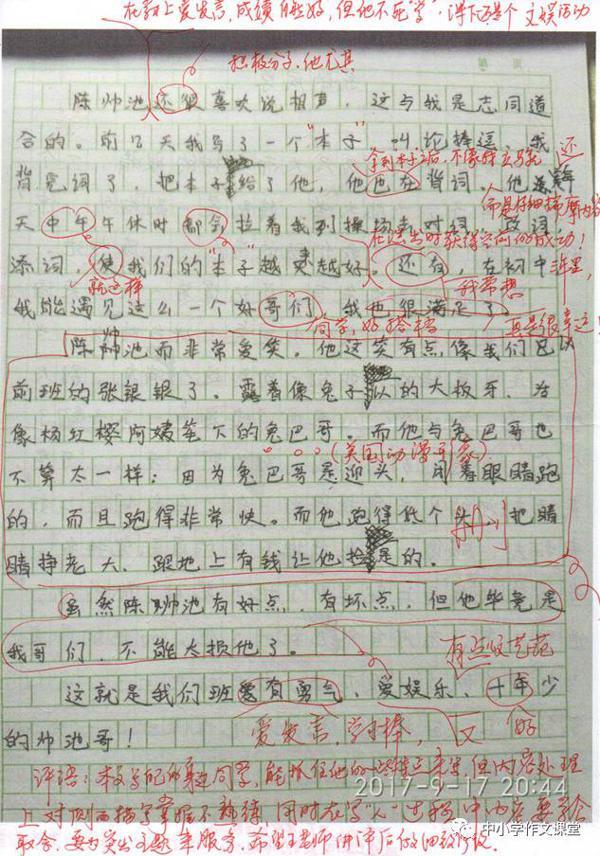 在初上爱发言,成绩自然好,但他不死"学",课下还是个文娱活动
积极分子,他尤其
陈帅池还很喜欢说相声,这与我是志同道
合的。前几天我写了一个"本子"叫论捧逗,我
拿到本子之后,不像
背完词了,把本子给了他,他也在背词。他
而是仔细揣摩内容
天中午午休时都会拉着我到操场去对词、改词、
在演出时获得空前的成功!
添词,使我们的"本子"越来越好。还有,在初中
就这样
我常想
我能遇见这么一个好哥们,我也很满足了。
同学、好搭档
真是很幸运!
陈帅池而非常爱笑。他这笑有点像我们以
前班的张银银了。露着像兔子似的大板牙,
像杨红樱阿姨笔下的兔巴哥。而他与兔巴哥也
(美国动漫形象)
不算太一样:因为兔巴哥是迎头,闭着眼睛跑
的,而且跑得非常快。而他跑得低个头,把眼
删
睛挣老大,跟地上有钱让他捡是的。
虽然陈帅池有好点,有坏点,但他毕竟是
我哥们,不能太损他了。
有些收
这就是我们班爱有勇气、爱娱乐、十年少
的帅池哥!
爱发言,
评语:本文写自己的身边同学,能抓住他的一些特点来写,但内容处理
2017-9-17 20:44
上对侧面描写掌握不熟练,同时在写"人"过程中内容要学会
取舍,要为突出主题来服务,希望王老师讲评后做细致修改。
中小学作文课堂